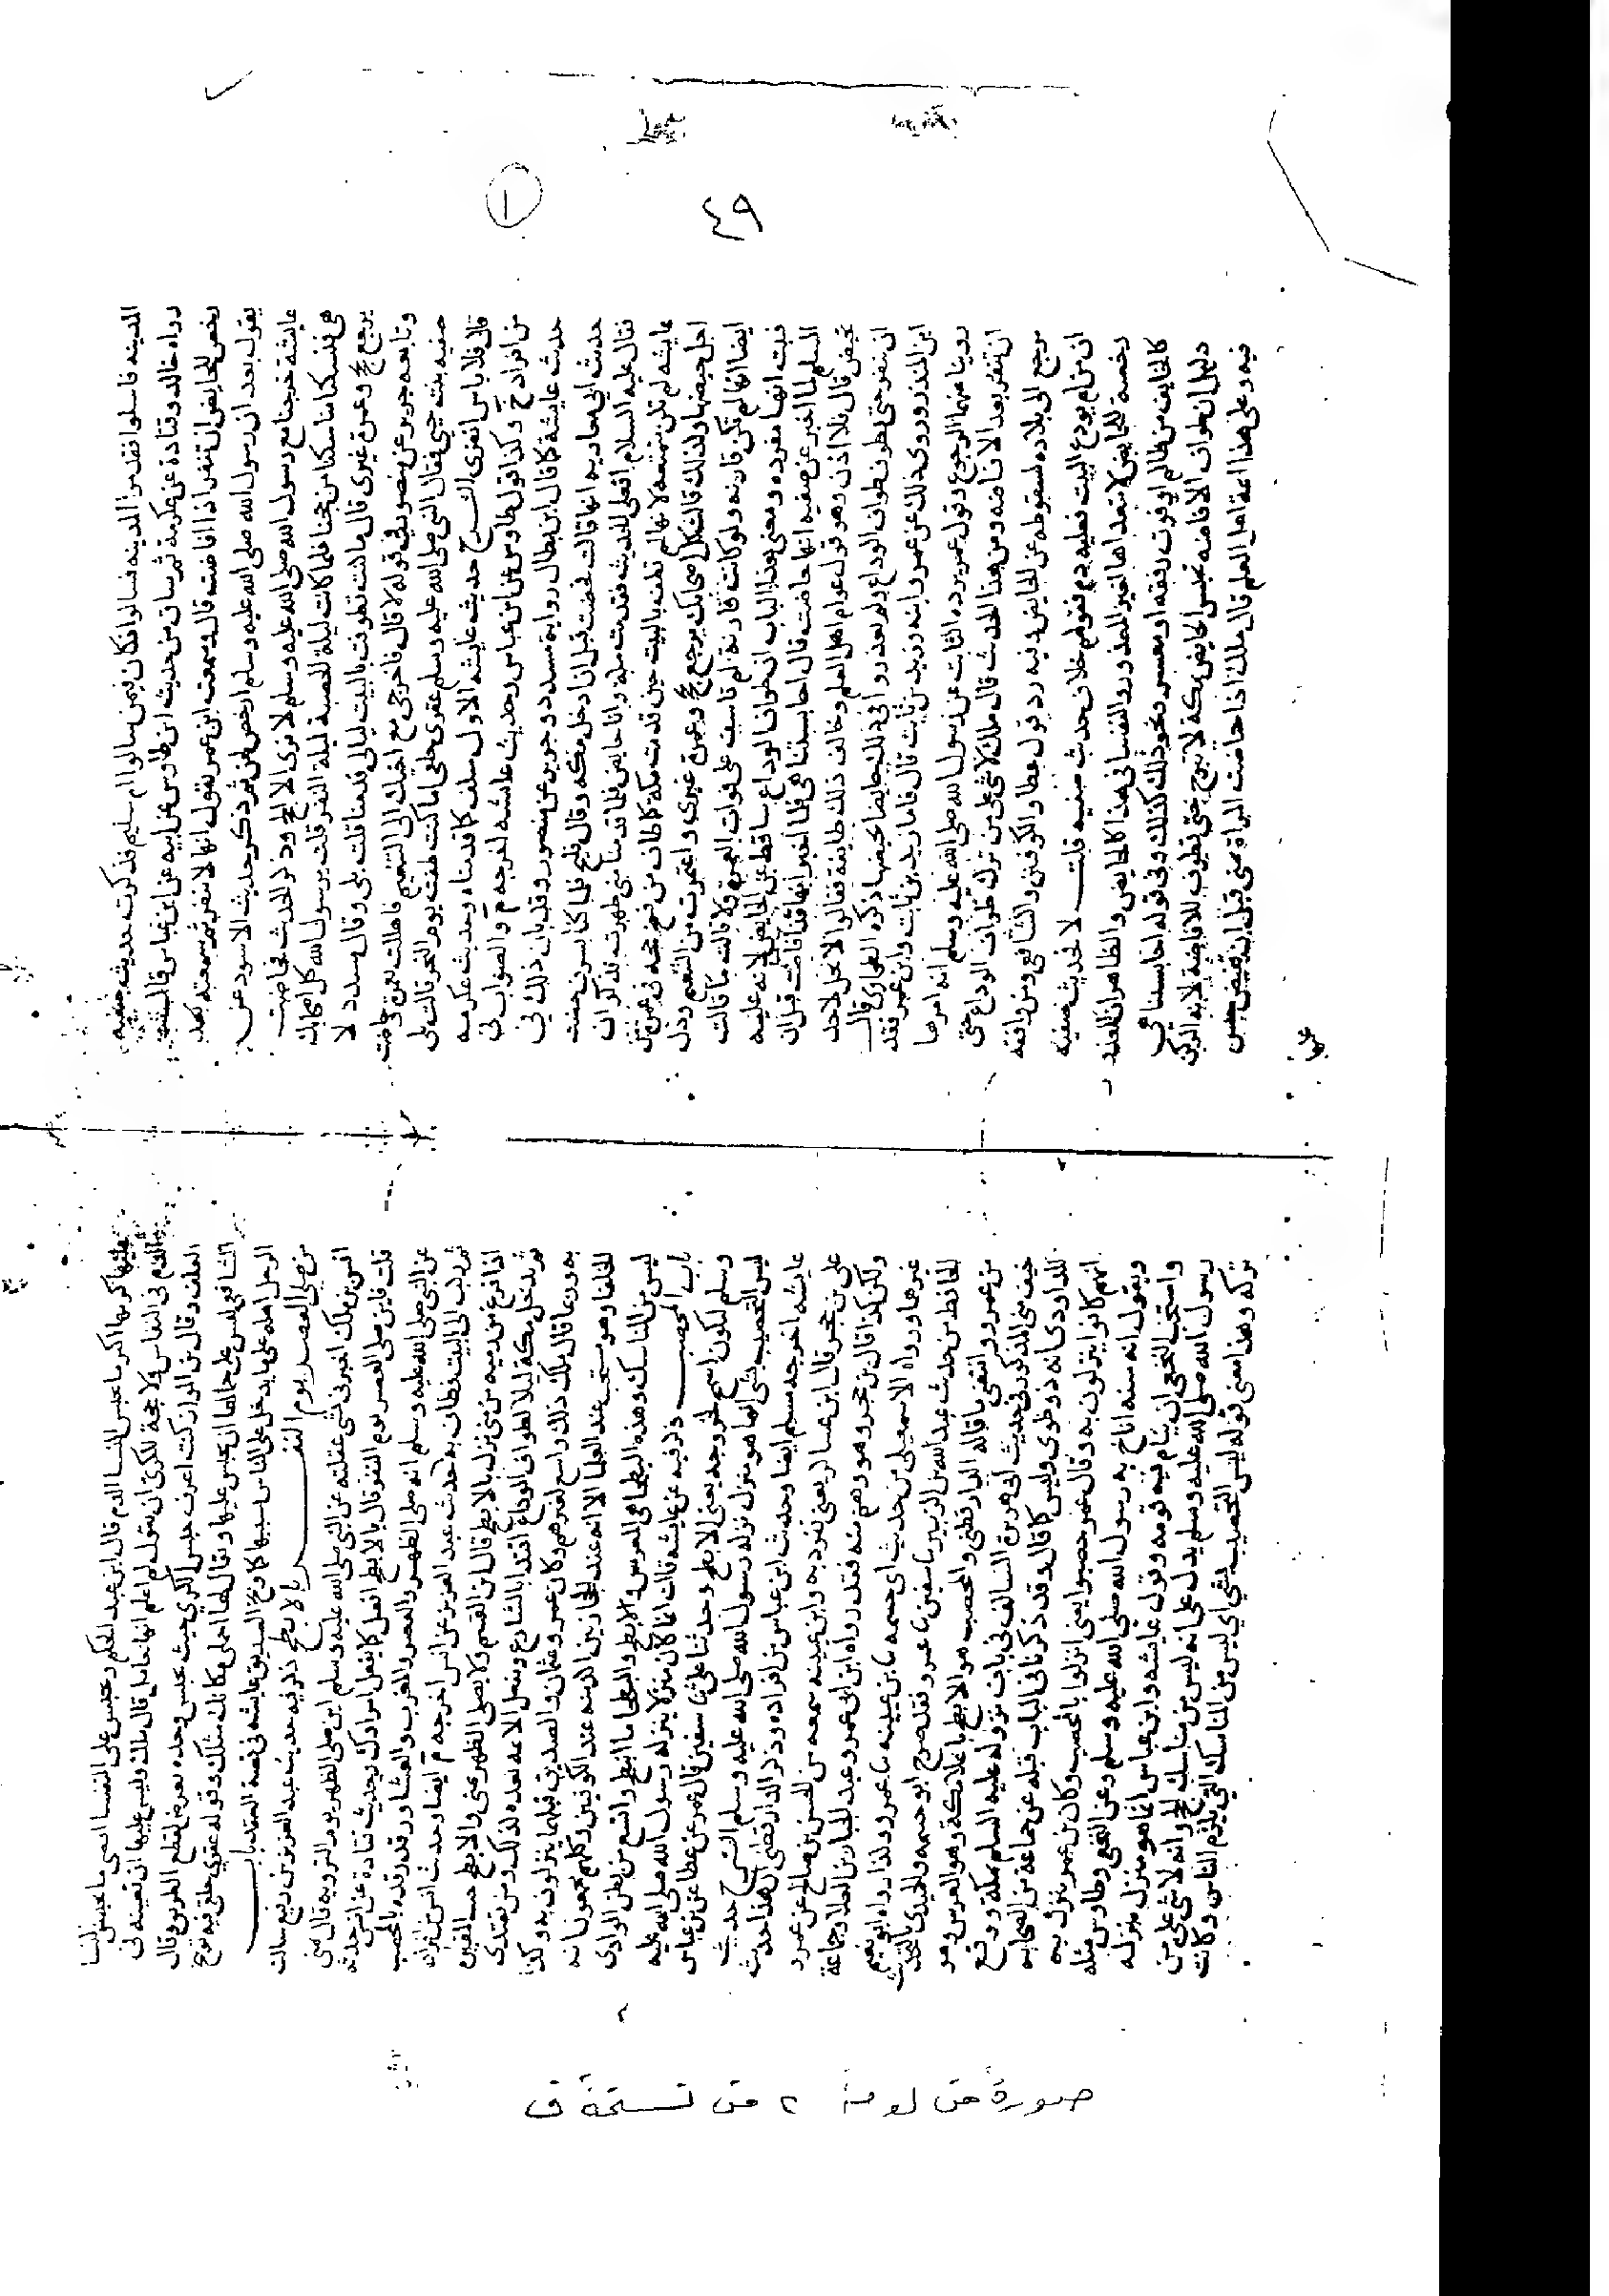 ٤٩
المدينه فاسلوا فقدموا المدينه فسالوا فكان فيمن سالوا ام سليم فذكرت حديث صفيه
رواه خالد وقتادة عن عكرمة ثم ساق من حديث ابن طاوس عن ابيه عن ابن عباس قال
رخص للحايض ان تنفر اذا افاضت قال وسمعت ابن عمر يقول انها لا تنفر ثم سمعته بعد
يقول بعد ان رسول الله صلى الله عليه وسلم ارخص لهن ثم ذكر حديث الاسود عن
عايشة خرجنا مع رسول الله صلى الله عليه وسلم لا نرى الا الحج وذكر الحديث فحاضت
هي فنسكنا مناسكنا من حجنا فلما كانت ليلة الحصبة ليلة النفر قلت يرسول الله كل اصحابك
يرجع بحج وعمرة غيرى قال ما كنت تطوفت بالبيت ليالى قدمنا قلت بلى وقال مسدد لا
وتابعه جرير عن منصور فى قوله لا قال فاخرجى مع اخيك الى التنعيم فاهللت بعمرة
صفيه بنت حيي فقال النبى صلى الله عليه وسلم عقرى حلقى اما كنت طفت يوم النحر قالت بلى
قال فلا باس انفرى الشرح حديث عايشه الاول سلف كما قدمناه وحديث عكرمه
من افراد خ وكذا قول طاوس عن ابن عباس وحديث عايشه اخرجه م والصواب فى
حديث عايشة كما قال ابن بطال رواية مسدد وجرير عن منصور وقيل بان ذلك فى
حديث ابى معاويه انها قالت فحضت قبل ان ادخل مكه وقال فليح فلما كنا بسرف حضت
فقال عليه السلام افعلى الحديث فقدمت مكة وانا حايض فلما قدمنا منى طهرت
عايشه لم تكن متمتعه لانها لم تطف بالبيت حين قدمت مكة
اجل حيضها ولذلك قالت كل اصحابك يرجع بحج وعمرة غيرى واعتمرت من التنعيم
ايضا انها لم تكن قارنه ولو كانت قارنة لم تاسف على فوات العمرة ولا قالت ما قالت
فثبت انها مفرده ومعنى هذا الباب ان طواف الوداع ساقط عن الحايض لانه عليه
السلم لما اخبر عن صفيه انها حاضت قال احابستنا هى فلما اخبر انها قد افاضت قبل ان
تحيض قال فلا اذن وهو قول عوام اهل العلم وخالف ذلك طايفه فقالوا لا يحل لاحد
ان ينفر حتى يطوف طواف الوداع ولم يعذروا فى ذلك حايضا بحيضها ذكره الطحاوى قال
ابن المنذر وروى ذلك عن عمر وابنه وزيد بن ثابت قال فاما زيد بن ثابت وابن عمر فقد
روينا عنهما الرجوع وقول عمر يرده الثابت عن رسول الله صلى الله عليه وسلم انه امرها
ان تنفر بعد الافاضه ومن هذا الحديث قال ملك لا شى على من ترك طواف الوداع حتى
يرجع الى بلاده لسقوطه عن الحايض وفيه رد قول عطا والكوفيين والشافعى ومن وافقه
ان من لم يودع البيت فعليه دم فقولهم خلاف حديث صفيه قلت لا فحديث صفيه
رخصة للحايض لا تتعداها لغير المعذور والنفسا فى هذا كالحايض والظاهر ان المعذور
كالخايف من ظالم او فوت رفقة او معسر ونحو ذلك كذلك وفى قوله احابستنا هى
دليل ان طواف الافاضه يحبس الحايض بمكة لا تبرح حتى تطوف للافاضة لانه الركن
فيه وعلى هذا ايمة اهل العلم قال ملك اذا حاضت المراة بمنى قبل ان تفيض حبس
عليها كريها اكثر ما يحبس النسا الدم قال ابن عبد الحكم وتحبس على النفسا اقصى ما يحبس النسا
الدم فى النفاس ولا حجة للكرى ان يقول لم اعلم انها حامل قال ملك وليس عليها ان تعينه فى
العلف وقال ابن المواز كنت اعرف حبس الكرى حيث يحبس وحده يعرض لقطع الطريق وقال
الشافعى ليس على جمالها ان يحبس عليها ويقال لها احملى مكانك مثلك وقوله عقرى حلقى فيه توبيخ
الرجل اهله على ما يدخل على الناس بسببها كما وبخ الصديق عايشه فى قصة العقد باب
من صلى العصر يوم النفر بالابطح ذكر فيه حديث عبد العزيز بن رفيع سالت
انس بن ملك اخبرنى بشى عقلته عن النبى صلى الله عليه وسلم اين صلى الظهر يوم الترويه قال بمنى
قلت فاين صلى العصر يوم النفر قال بالابطح افعل كما يفعل امراوك وحديث قتادة عن انس حدثه
عن النبى صلى الله عليه وسلم انه صلى الظهر والعصر والمغرب والعشا ورقد رقده بالمحصب
ثم ركب الى البيت فطاف به حديث عبد العزيز عن انس اخرجه م ايضا وحديث انس
اذا فرغ من رميه من منى نزل بالابطح قال ابن القسم ولا يصلى الظهر بمنى والابطح حيث المقبره
ثم يدخل مكة ليلا لطواف الوداع اقتدا بالشارع وفعل الايمه بعده لذلك ومن يقتدى
به ورعا قال ملك ذلك واسع لغيرهم وكان عمر وعثمان والصديق قبلهما ينزلون به وكذا
الخلفا وهو مستحب عند العلما الا انه عند الحجازيين اوكد منه عند الكوفيين وكلهم مجمعون انه
ليس من المناسك وهذه البطحا هى المعرس والابطح والبطحا ما انبطح واتسع من بطن الوادى
باب المحصب ذكر فيه عن عايشه قالت انما كان منزلا ينزله رسول الله صلى الله عليه
وسلم ليكون اسمح لخروجه يعنى الابطح وحدثنا على ثنا سفين قال عمرو عن عطا عن ابن عباس
ليس التحصيب بشى انما هو منزل نزله رسول الله صلى الله عليه وسلم الشرح حديث
عايشه اخرجه مسلم ايضا وحديث ابن عباس من افراده وذكر الدارقطنى ان هذا حديث
على بن حجر قال ابن عساكر يعنى تفرد به وابن عيينه سمعه من الحسن بن صالح عن عمرو
ولكن كذا قال ابن حجر وهو وهم منه فقد رواه ابن ابى عمر وعبد الجبار بن العلا وجماعة
غيرها ورواه الاسمعيلى من حديث ابى خيثمه ثنا ابن عيينه ثنا عمرو وكذا رواه ابو نعيم
الحافظ من حديث عبد الله بن الزبير ثنا سفين ثنا عمرو فقد صرح ابو خيثمه والحميدى بالتحديث
من عمرو وانتفى ما قاله الدارقطنى والمحصب هو الابطح باعلا مكة وهو المعرس وهو
خيف منى المذكور فى حديث ابى هريرة السالف فى باب نزوله عليه السلم بمكة ووقع
للداودى انه ذو طوى وليس كما قال وقد ذكرنا فى الباب قبله عن جماعة من الصحابه
انهم كانوا ينزلون به وقال عمر حصبوا يعنى انزلوا بالمحصب وكان ابن عمر ينزل به
ويقول انه سنه اناخ به رسول الله صلى الله عليه وسلم وعن النخعى وطاوس مثله
واستحب النخعى ان ينام فيه نومه وقول عايشه وابن عباس انما هو منزل نزله
رسول الله صلى الله عليه وسلم يدل على انه ليس من مناسك الحج وانه لا شى على من
تركه وهذا معنى قوله ليس التحصيب بشى اى ليس من المناسك التى تلزم الناس وكانت
صورة من لوحة ٢ من نسخة ف